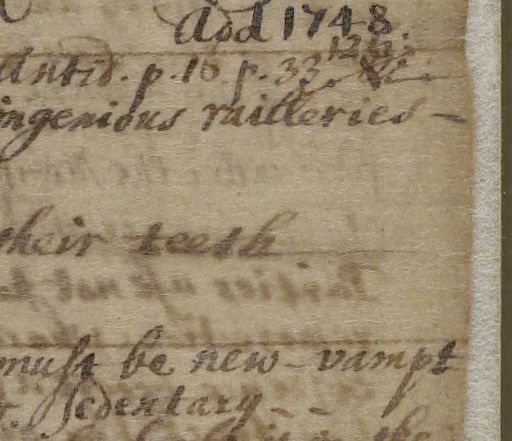 Add 1748
Antid. p. 16 p. 33.
ingenious railleries -
their teeth
must be new-vampt
Sedentary - -